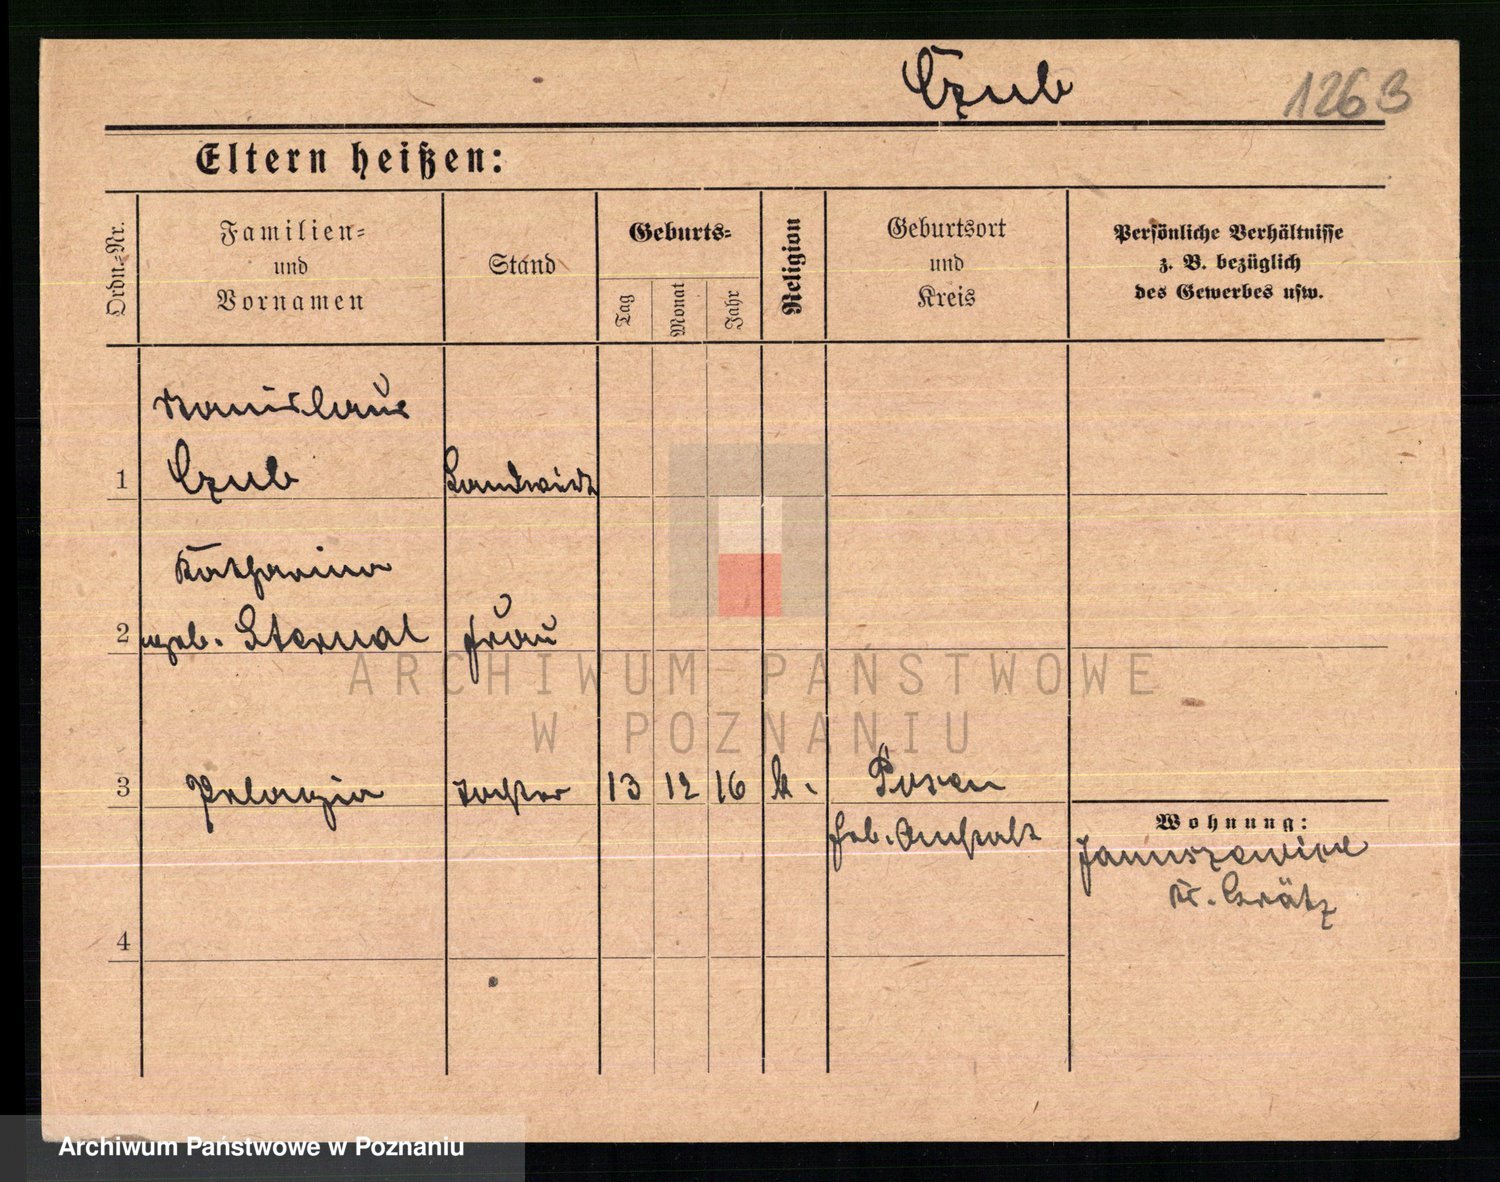 Czub 1263
Eltern heißen:
Ordn.-Nr.
Familien-
und
Vornamen
Stand
Geburts-
Tag
Monat
Jahr
Religion
Geburtsort
und
Kreis
Persönliche Verhältnisse
z. B. bezüglich
des Gewerbes usw.
Stanislaus
1 Czub Landwirt
Katharina
2 geb. Sternal Frau
3 Pelagia Tochter 13 12 16 k. Posen
Geb. Anstalt
Wohnung:
Januszewice
Kr. Grätz
4
ARCHIWUM PAŃSTWOWE
W POZNANIU
Archiwum Państwowe w Poznaniu